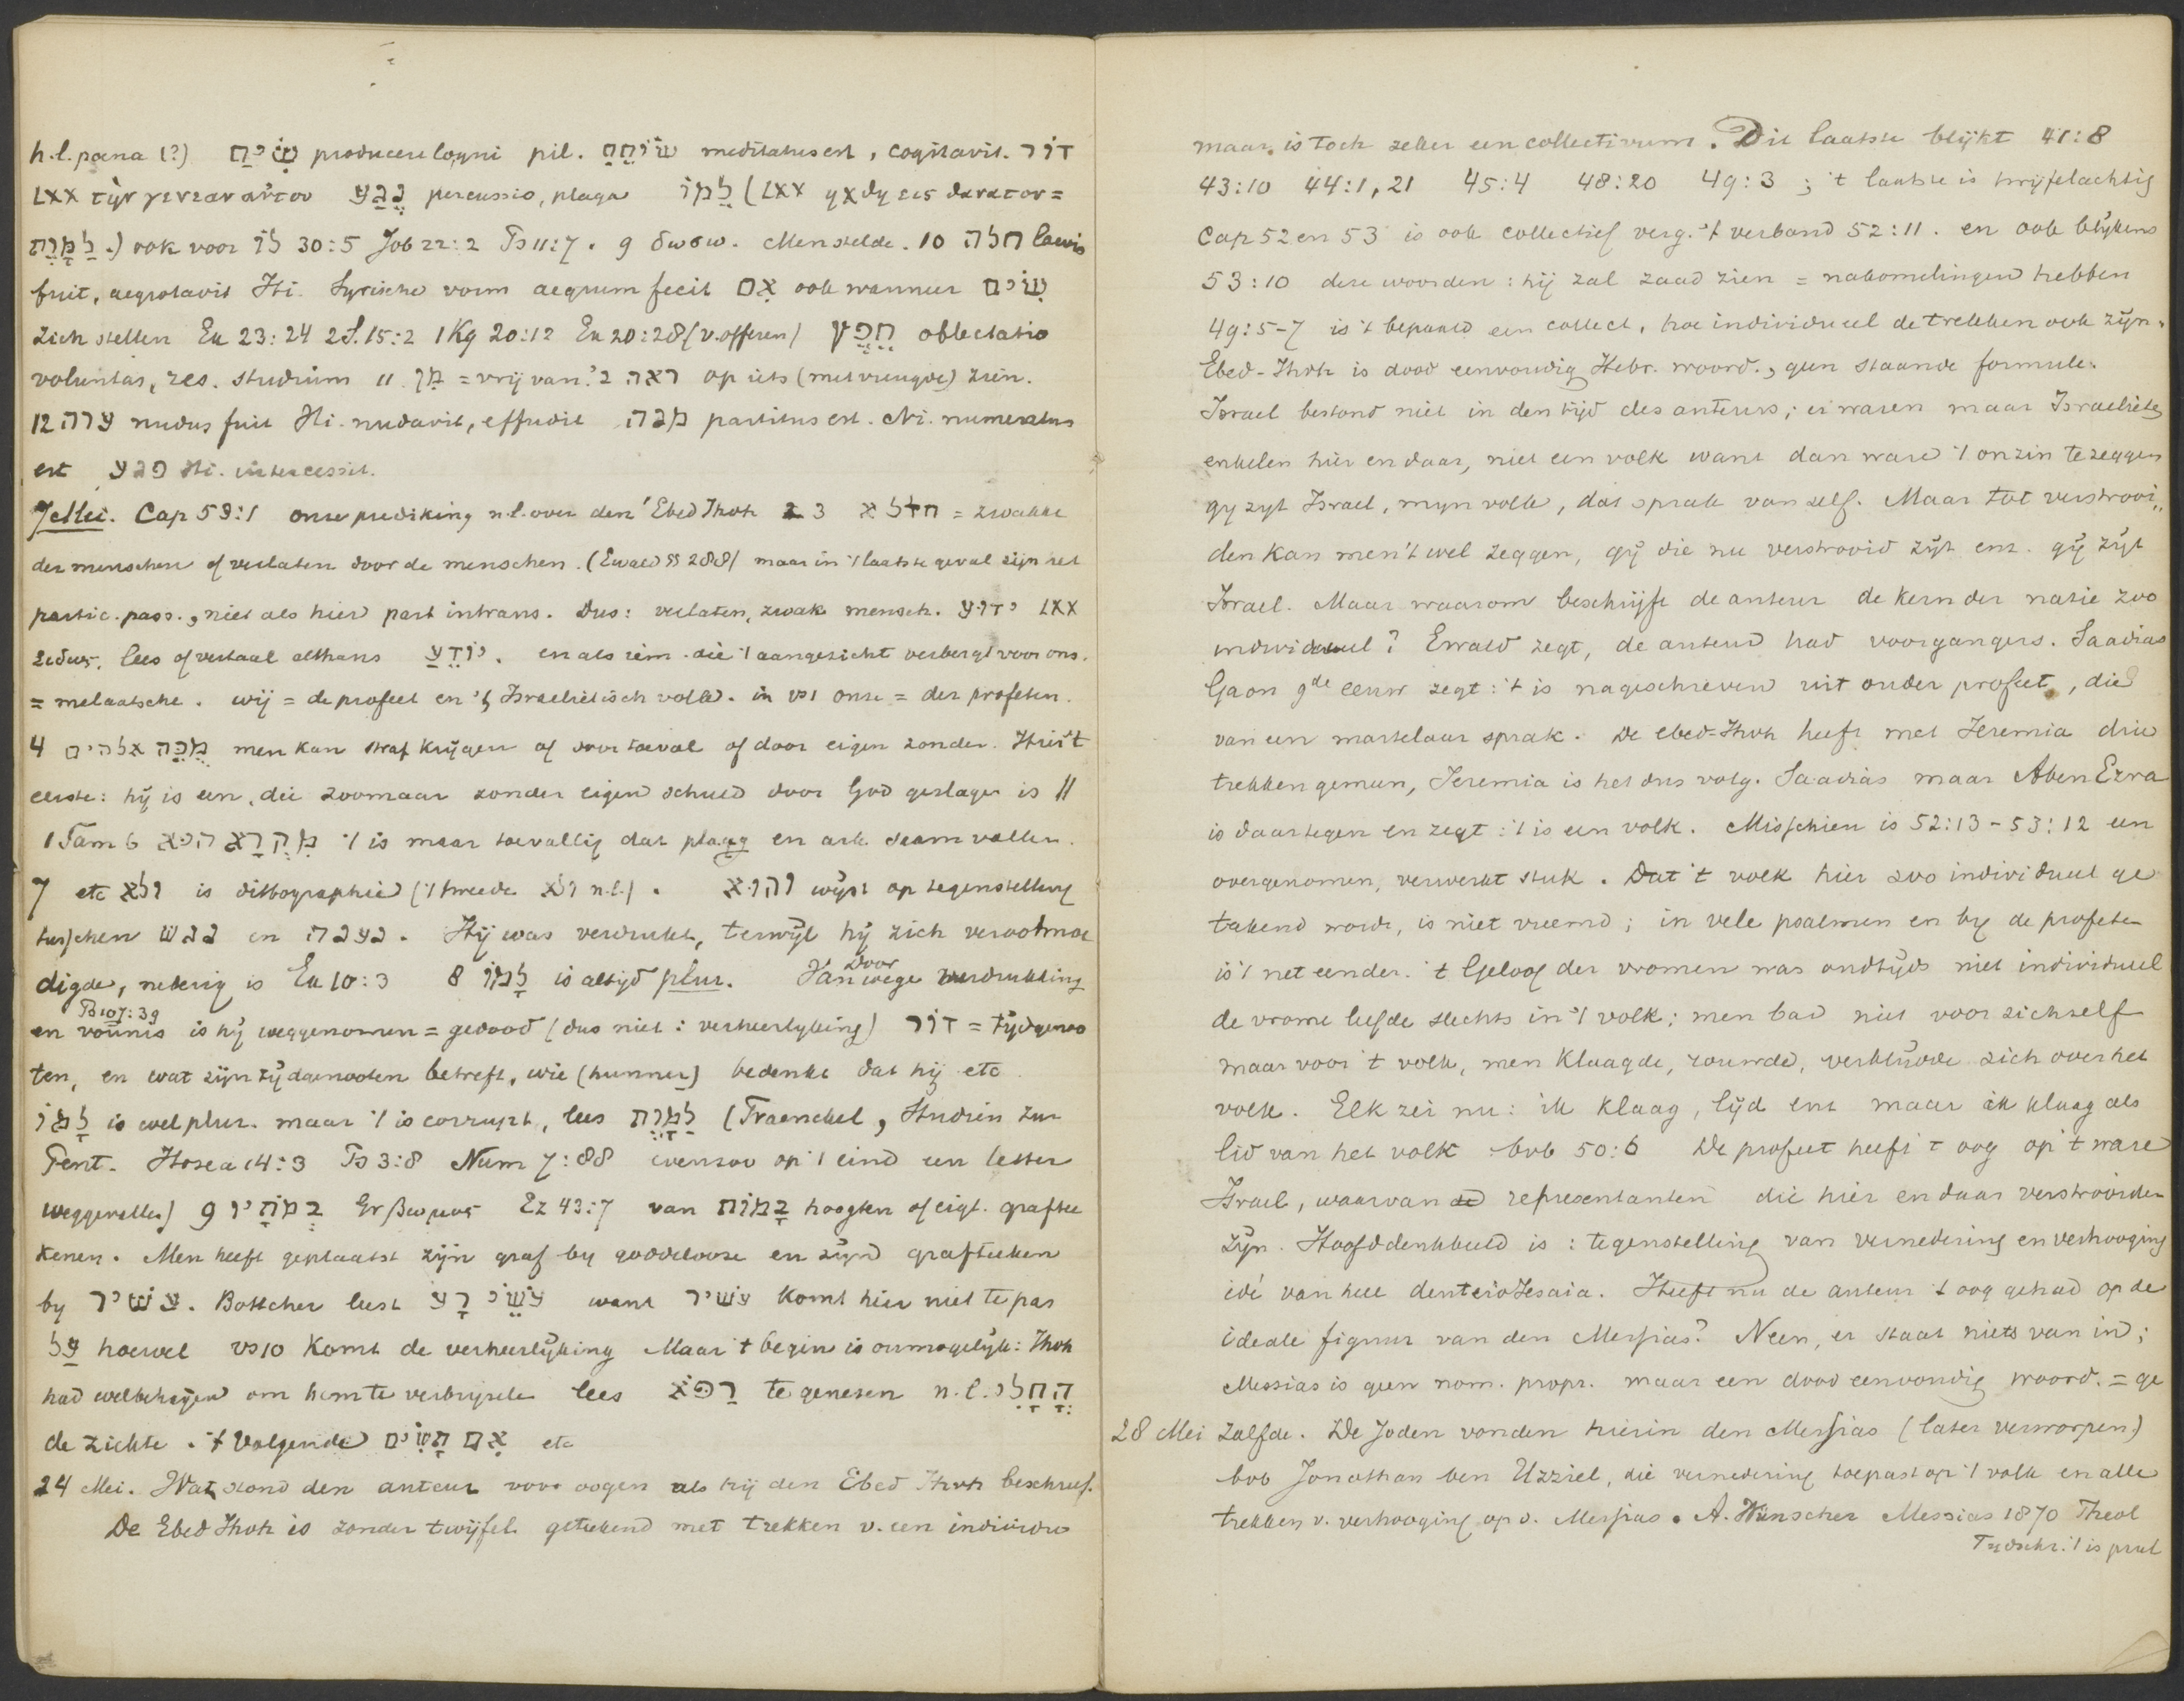 h.l. poena (?) שִׂיחַ producere loqui pil. שׂוֹחֵחַ meditatus est, cogitavit. דוֹר
LXX τὴν γενεαν αὐτου נֶגַע percussio, plaga לָמוֹ (LXX ηχθη εις θανατον =
לַמָּוֶת.) ook voor לוֹ 30:5 Job 22:2 Ps 11:7. 9 δωσω. Men stelde. 10 חלה laevis
fuit, aegrotavit Hi. Syrische vorm aegrum fecit אִם ook wanneer שׂוֹם
zich stellen Ex 23:24 2S. 15:2 1 Kg 20:12 Ex 20:28 (v. offeren) חֵפֶץ oblectatio
voluntas, res. studium 11 מִן = vrij van. ראה ב op iets (met vreugde) zien.
12 ערה nudus fuit Hi. nudavit, effudit מנה partitus est. Ni. numeratus
est פגע Hi. intercessit.
7 Mei. Cap 53:1 onze prediking n.l. over den 'Ebed Jhvh 3 חדל = zwakke
der menschen of verlaten door de menschen. (Ewald § 288) maar in 't laatste geval zijn het
partic. pass., niet als hier part intrans. Dus: verlaten, zwak mensch. ידוע LXX
ειδως, lees of vertaal althans יוֹדֵעַ. en als een die 't aangezicht verbergt voor ons.
= melaatsche. wij = de profeet en 't Israelietisch volk. in vs 1 onze = der profeten.
4 מֻכֵּה אלהים men kan straf krijgen of door toeval of door eigen zonden. Hier 't
eerste: hij is een, die zoomaar zonder eigen schuld door God geslagen is //
1 Sam 6 מִקְרֶא הוא 't is maar toevallig dat plaag en ark saam vallen.
7 etc ולא is dittographie ('t tweede ולא n.l.). והוא wijst op tegenstelling
tusschen נגשׂ en נענה. Hij was verdrukt, terwijl hij zich verootmoe
digde, nederig is Ex 10:3 8 לָמוֹ is altijd plur. Van wege Door verdrukking
en vonnis Ps 107:39 is hij weggenomen = gedood (dus niet: verheerlyking) דור = tijdgenoo
ten, en wat zijn tijdgenooten betreft, wie (hunner) bedenkt dat hij etc.
לָמוֹ is wel plur. maar 't is corrupt, lees לַמָּוֶת (Fraenckel, Studien zur
Sept. Hosea 14:3 Ps 3:8 Num 7:88 evenzoo op 't eind een letter
weggevallen) 9 בְּמֹתָיו Er βωμους Ez 43:7 van בָּמוֹת hoogten of eigl. graftee
kenen. Men heeft geplaatst zijn graf by goddeloozen en zijn grafteeken
by עשׁיר. Bottcher leest עֹשֵׂי רָע want עשיר komt hier niet te pas
על hoewel vs 10 Komt de verheerlijking Maar 't begin is onmogelijk: Jhvh
had welbehagen om hem te verbrijzele lees רַפֹּא te genezen n.l. הֶחֳלִי
de ziekte. 't Volgende אִם תָּשִׂים etc
24 Mei. Wat stond den auteur voor oogen als hij den Ebed Jhvh beschreef.
De Ebed Jhvh is zonder twijfel geteekend met trekken v. een individu
maar is toch zeker een collectivum. Dit laatste blijkt 41:8
43:10 44:1,21 45:4 48:20 49:3; 't laatste is twijfelachtig
Cap 52 en 53 is ook collectief verg. 't verband 52:11. en ook blijkens
53:10 deze woorden: hij zal zaad zien = nakomelingen hebben
49:5-7 is 't bepaald een collect, hoe individueel de trekken ook zijn.
Ebed-Jhvh is dood eenvoudig Hebr. woord., geen staande formule.
Israel bestond niet in den tijd des auteurs; er waren maar Israelieten
enkelen hier en daar, niet een volk want dan ware 't onzin te zeggen
gy zyt Israel, mijn volk, dat sprak van zelf. Maar tot verstrooi„
den kan men 't wel zeggen, gij die nu verstrooid zijt enz. gij zijt
Israel. Maar waarom beschrijft de auteur de kern der natie zoo
individueel? Ewald zegt, de auteur had voorgangers. Saadias
Gaon 9de eeuw zegt: 't is nageschreven uit ouder profeet, die
van een martelaar sprak. De ebed-Jhvh heeft met Jeremia drie
trekken gemeen, Jeremia is het dus volg. Saadias maar Aben Ezra
is daartegen en zegt: 't is een volk. Misschien is 52:13-53:12 een
overgenomen, verwerkt stuk. Dat 't volk hier zoo individueel ge
tekend wordt, is niet vreemd; in vele psalmen en by de profeten
is 't net eender. 't Geloof der vromen was oudtijds niet individueel
de vrome leefde slechts in 't volk; men bad niet voor zichzelf
maar voor 't volk, men klaagde, rouwde, verblijdde zich over het
volk. Elk zei nu: ik klaag, lijd enz maar ik klaag als
lid van het volk bvb 50:6 De profeet heeft 't oog op 't ware
Israel, waarvan de representanten die hier en daar verstrooiden
zijn. Hoofddenkbeeld is: tegenstelling van vernedering en verhooging
ideé van heel deuteroJesaia. Heeft nu de auteur 't oog gehad op de
ideale figuur van den Messias? Neen, er staat niets van in;
Messias is geen nom. propr. maar een dood eenvoudig woord. = ge
28 Mei zalfde. De Joden vonden hierin den Messias (later verworpen)
bvb Jonathan ben Uzziel, die vernedering toepast op 't volk en alle
trekken v. verhooging op d. Messias. A. Wünscher Messias 1870 Theol
Tijdschr. 't is prul